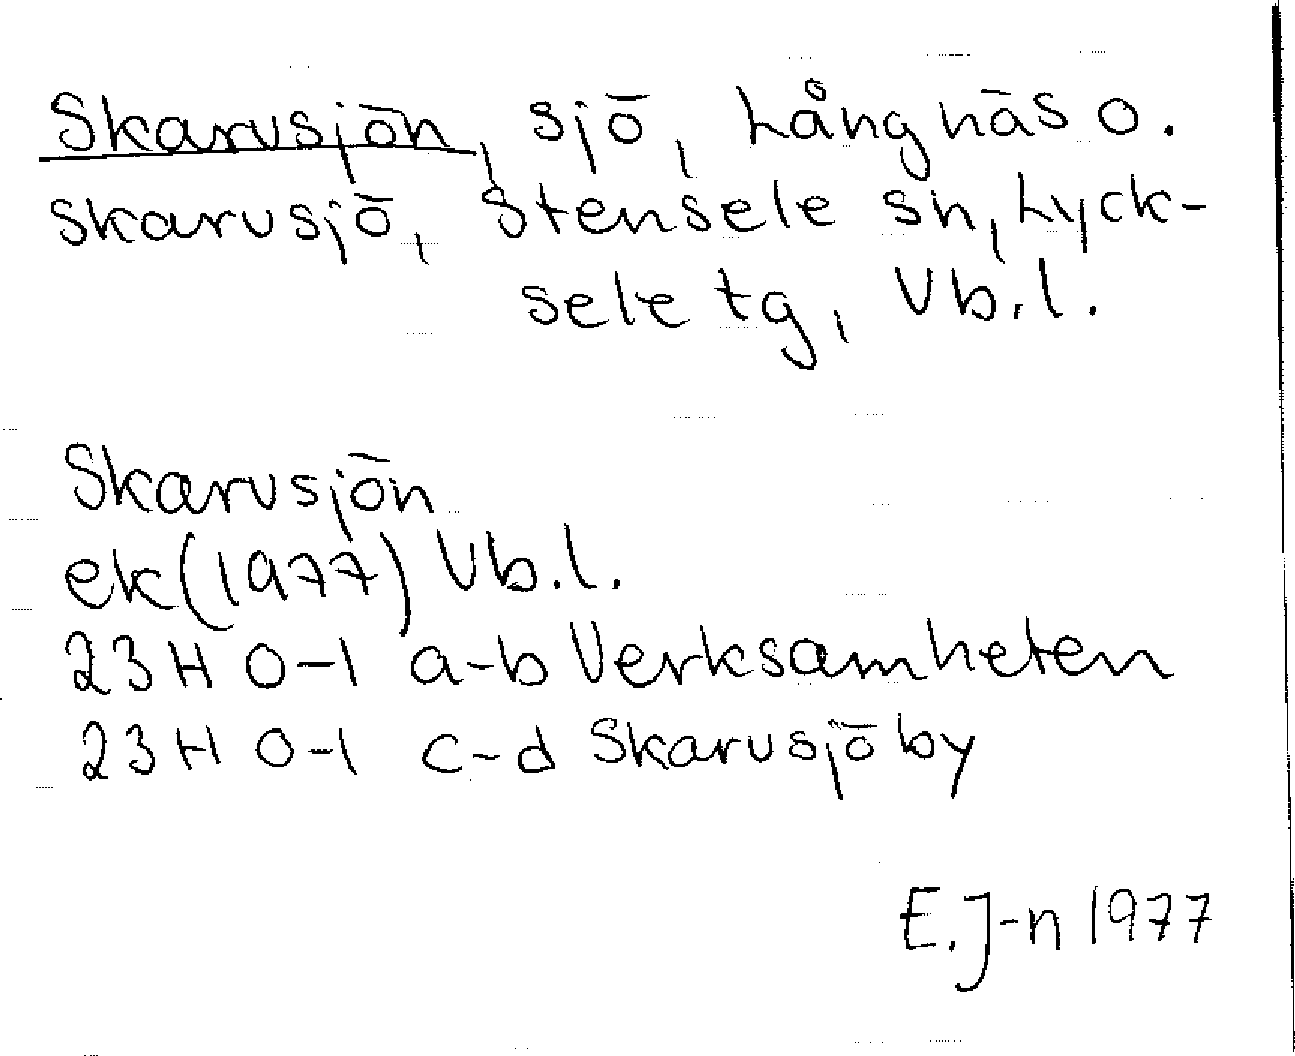 Skarvsjön, sjö, Långnäs o.
Skarvsjö, Stensele sn, Lyck-
sele tg, Vb.l.
Skarvsjön
ek(1977) Vb.l.
23H 0-1 a-b Verksamheten
23H 0-1 c-d Skarvsjöby
E.J-n 1977